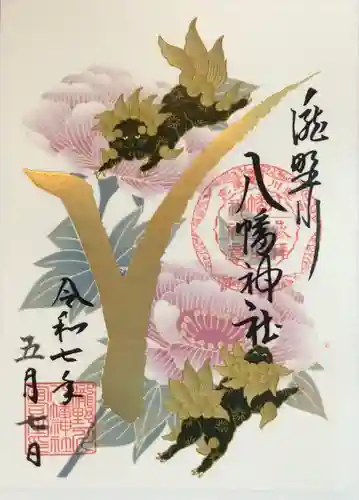 滝野川
八幡神社
令和七年
五月七日